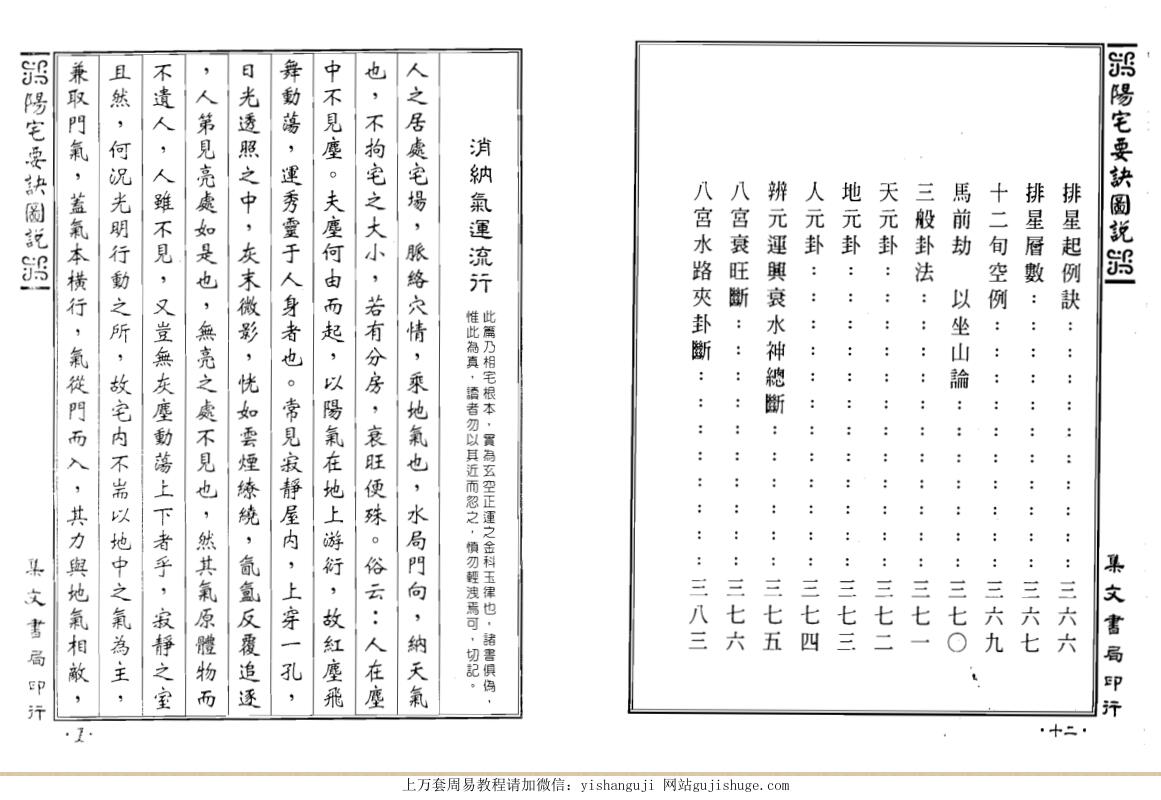 陽宅要訣圖說
集文書局印行
排星起例訣：：：：：：：：：：三六六
排星層數：：：：：：：：：：：三六七
十二旬空例：：：：：：：：：：三六九
馬前劫　以坐山論：：：：：：：三七〇
三般卦法：：：：：：：：：：：三七一
天元卦：：：：：：：：：：：：三七二
地元卦：：：：：：：：：：：：三七三
人元卦：：：：：：：：：：：：三七四
辨元運興衰水神總斷：：：：：：三七五
八宮衰旺斷：：：：：：：：：：三七六
八宮水路夾卦斷：：：：：：：：三八三
·十二·
消納氣運流行
此篇乃相宅根本，實為玄空正運之金科玉律也，諸書俱偽，
惟此為真，讀者勿以其近而忽之，慎勿輕洩焉可，切記。
人之居處宅場，脈絡穴情，乘地氣也，水局門向，納天氣
也，不拘宅之大小，若有分房，衰旺便殊。俗云：人在塵
中不見塵。夫塵何由而起，以陽氣在地上游衍，故紅塵飛
舞動蕩，運秀靈于人身者也。常見寂靜屋內，上穿一孔，
日光透照之中，灰末微影，恍如雲煙繚繞，氤氳反覆追逐
，人第見亮處如是也，無亮之處不見也，然其氣原體物而
不遺人，人雖不見，又豈無灰塵動蕩上下者乎，寂靜之室
且然，何況光明行動之所，故宅內不耑以地中之氣為主，
兼取門氣，蓋氣本橫行，氣從門而入，其力與地氣相敵，
陽宅要訣圖說
集文書局印行
·1·
上万套周易教程请加微信：yishanguji 网站gujishuge.com